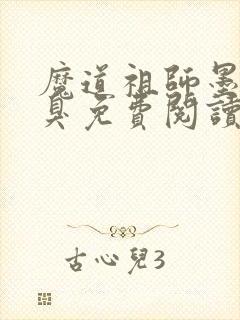 魔道祖师墨
臭免費閱讀
古心兒3